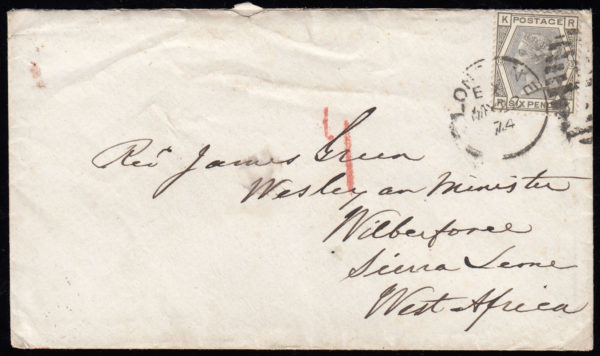 K POSTAGE R
R SIX PENCE K
LON
E
74
4
Revd James Green
Wesleyan Minister
Wilberforce
Sierra Leone
West Africa